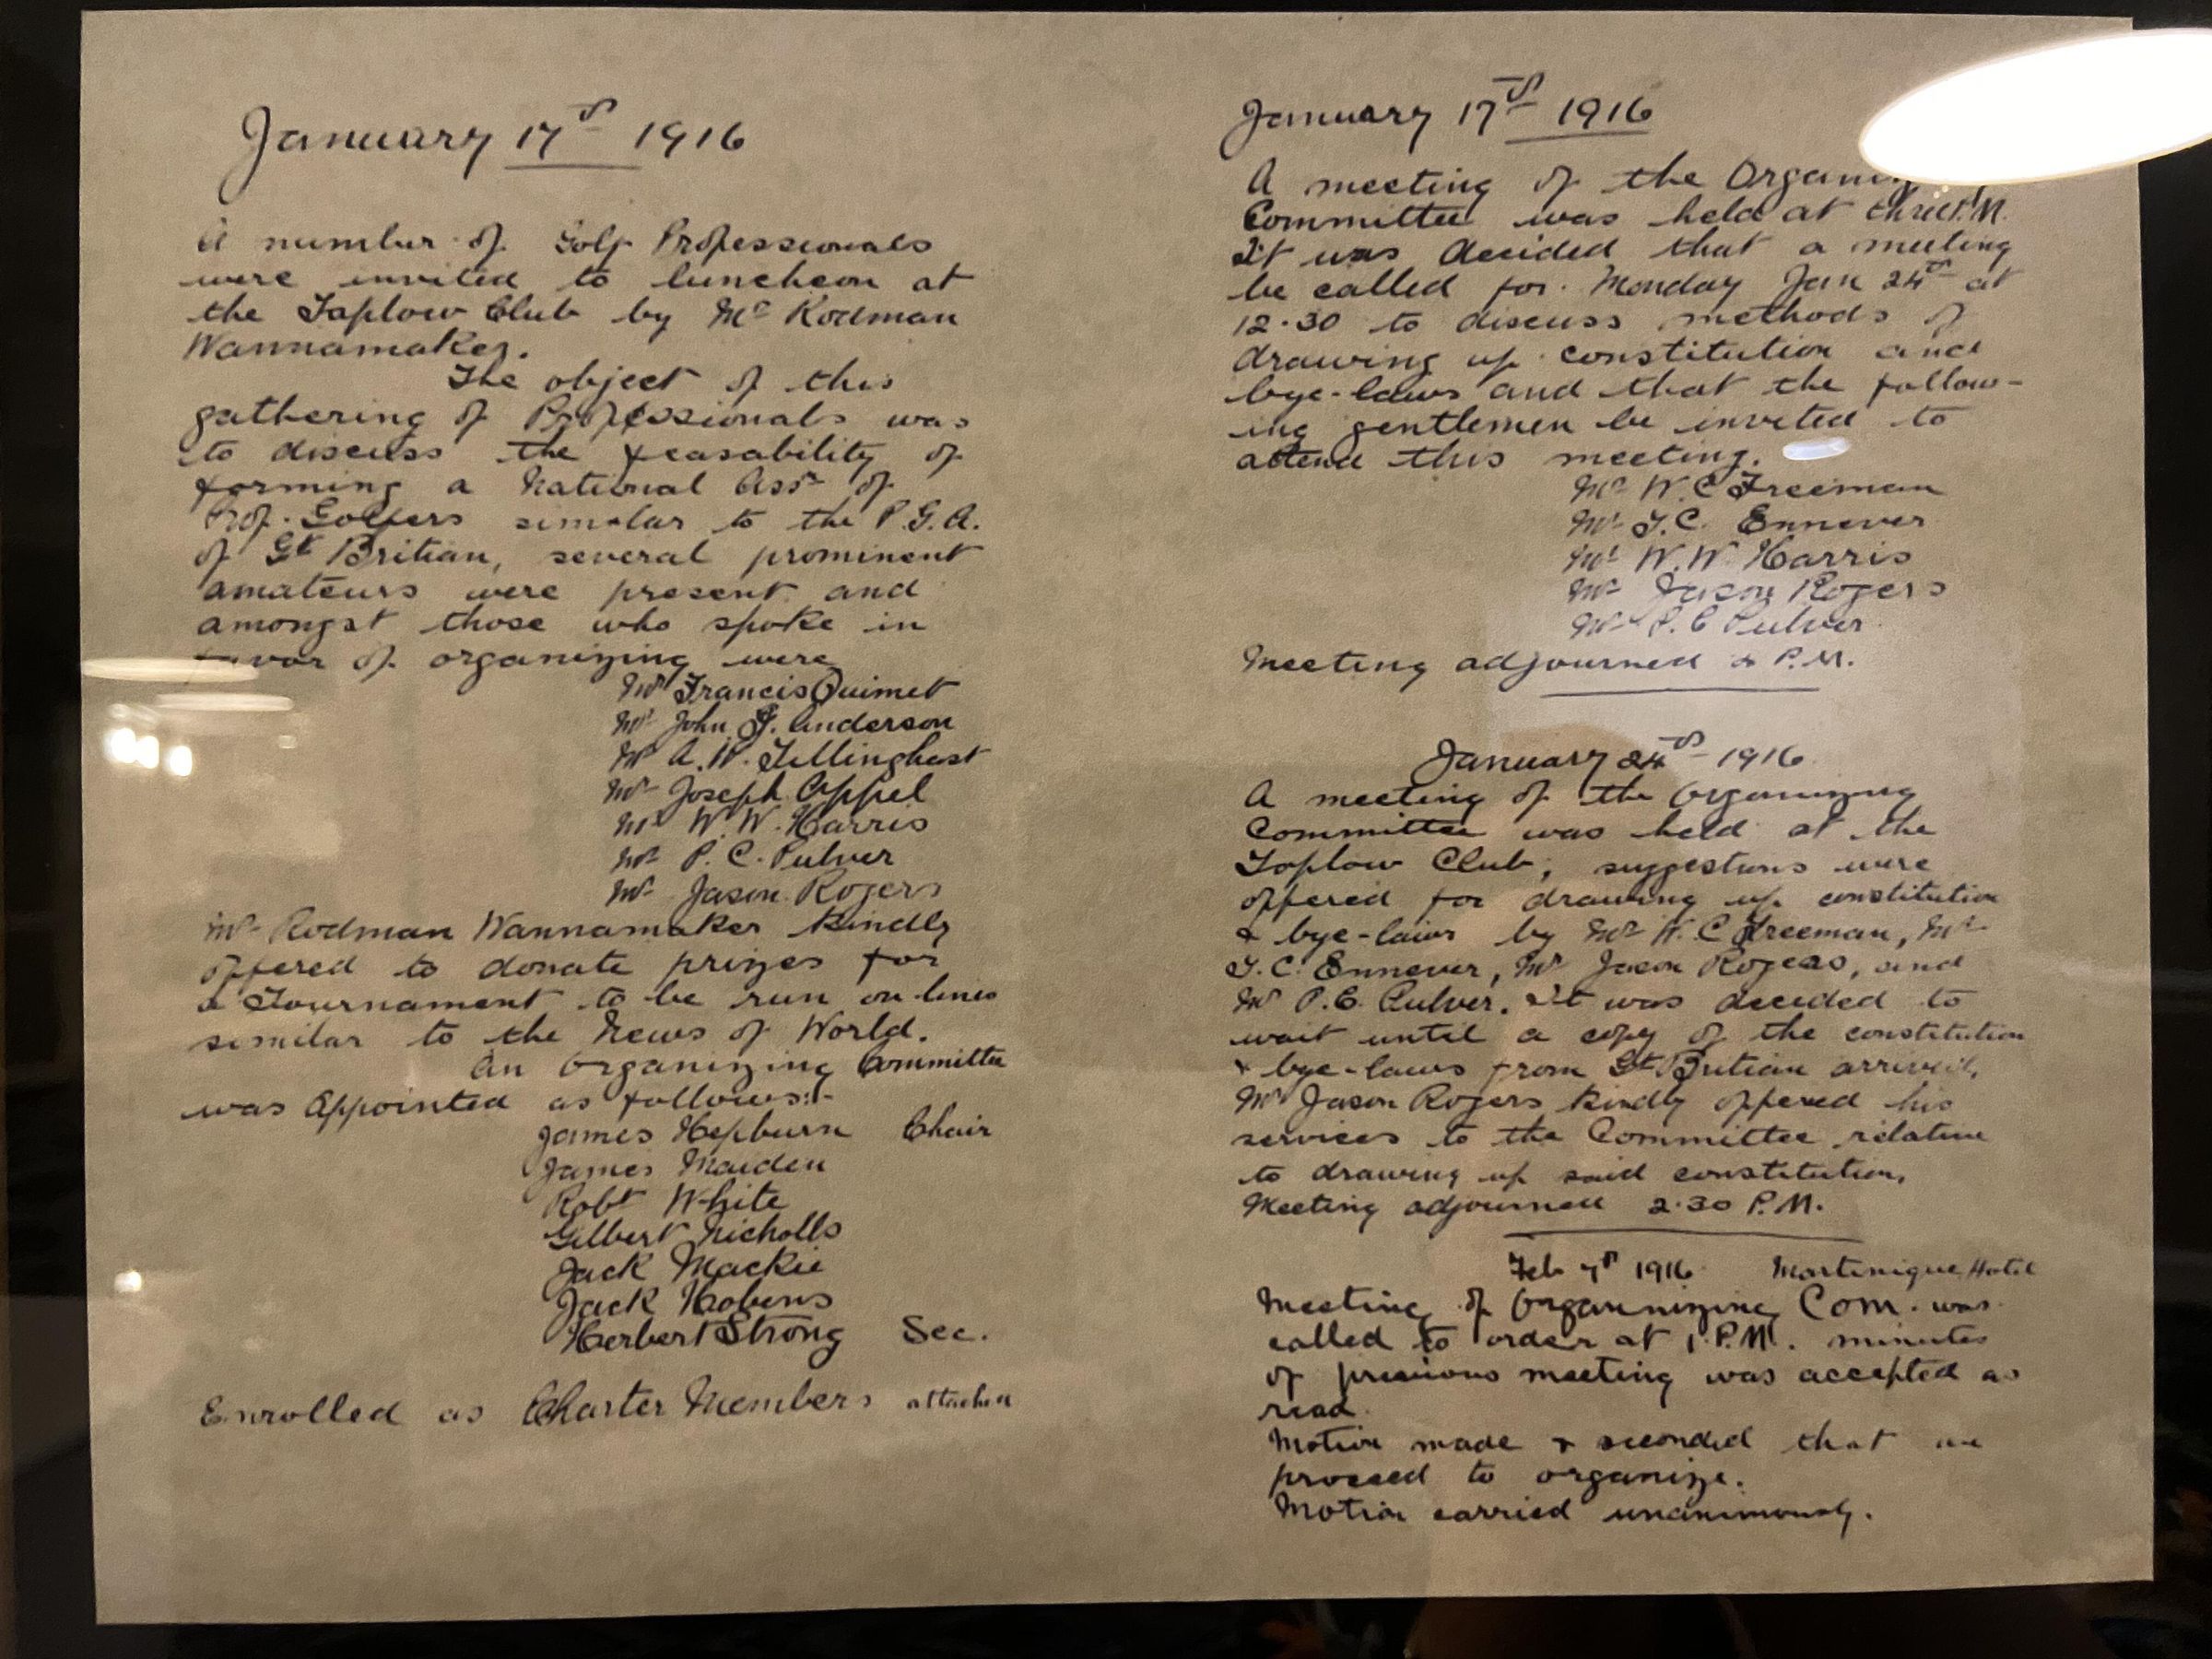 January 17th 1916
A number of Golf Professionals
were invited to luncheon at
the Taplow Club by Mr Rodman
Wannamaker.
The object of this
gathering of Professionals was
to discuss the feasability of
forming a National Assn of
Prof. Golfers similar to the P.G.A.
of Gt Britian, several prominent
amateurs were present and
amongst those who spoke in
favor of organizing were
Mr Francis Ouimet
Mr John G. Anderson
Mr A. W. Tillinghast
Mr Joseph Appel
Mr W. W. Harris
Mr P. C. Pulver
Mr Jason Rogers
Mr Rodman Wannamaker kindly
offered to donate prizes for
a Tournament to be run on lines
similar to the News of World.
An Organizing Committee
was Appointed as follows:-
James Hepburn Chair
James Maiden
Robt White
Gilbert Nicholls
Jack Mackie
Jack Hobens
Herbert Strong Sec.
Enrolled as Charter Members attached
January 17th 1916
A meeting of the
Committee was held at three P.M.
It was decided that a meeting
be called for Monday Jan 24th at
12.30 to discuss methods of
drawing up constitution and
bye-laws and that the follow-
ing gentlemen be invited to
attend this meeting.
Mr W. C Freeman
Mr T. C. Ennever
Mr W. W. Harris
Mr Jason Rogers
Mr P. C Pulver
Meeting adjourned P.M.
January 24th 1916
A meeting of the Organizing
Committee was held at the
Taplow Club, suggestions were
offered for drawing up constitution
& bye-laws by Mr W. C Freeman, Mr
T. C. Ennever, Mr Jason Rogers, and
Mr P. C. Pulver. It was decided to
wait until a copy of the constitution
& bye-laws from Gt Britian arrived,
Mr Jason Rogers kindly offered his
services to the Committee relative
to drawing up said constitution,
Meeting adjourned 2.30 P.M.
Feb 7th 1916 Martinique Hotel
Meeting of Organnizing Com. was
called to order at 1 P.M. minutes
of previous meeting was accepted as
read.
Motion made & seconded that we
proceed to organize.
Motion carried unanimously.